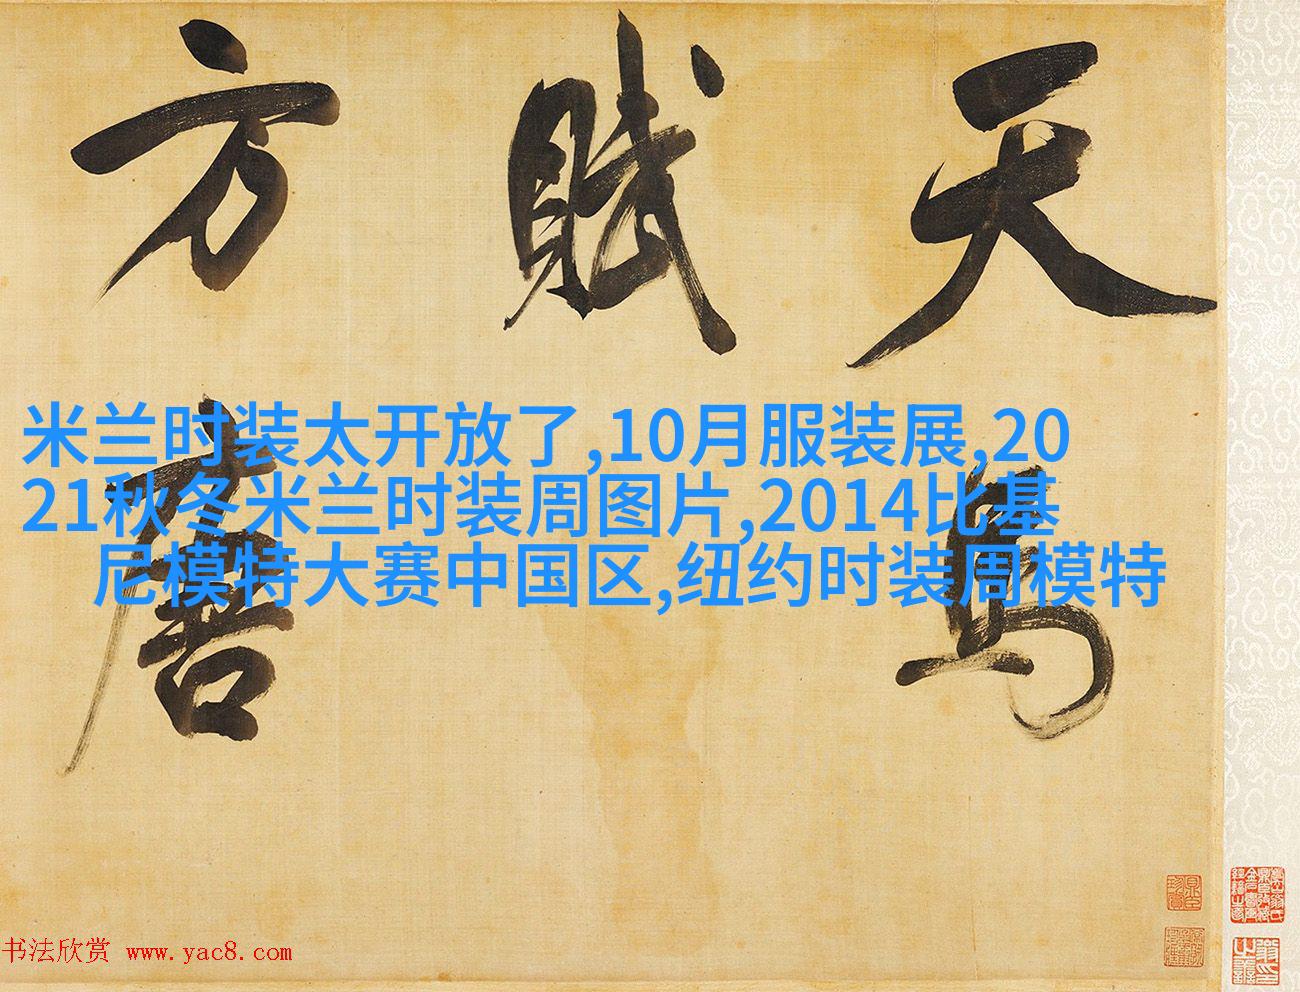 天馬
賦
方唐
米兰时装太开放了,10月服装展,20
21秋冬米兰时装周图片,2014比基
尼模特大赛中国区,纽约时装周模特
书法欣赏 www.yac8.com